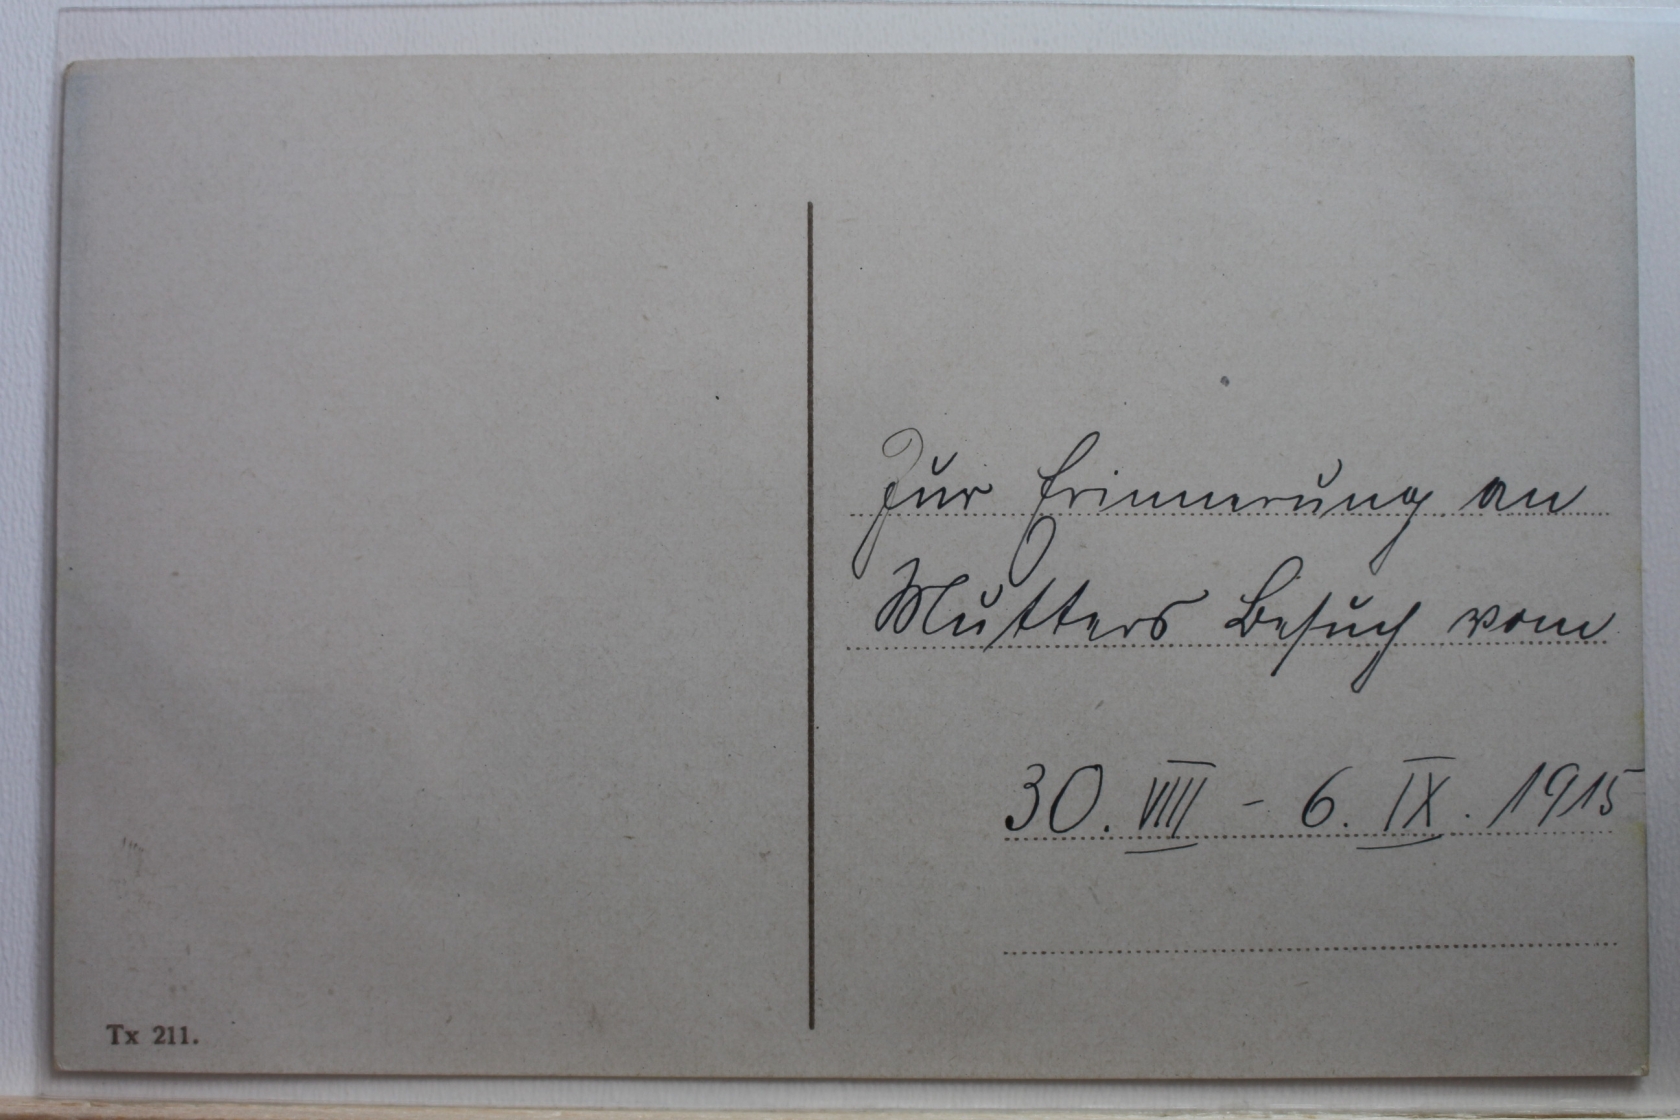 Zur Erinnerung an
Mutters Besuch vom
30. VIII - 6. IX. 1915
Tx 211.